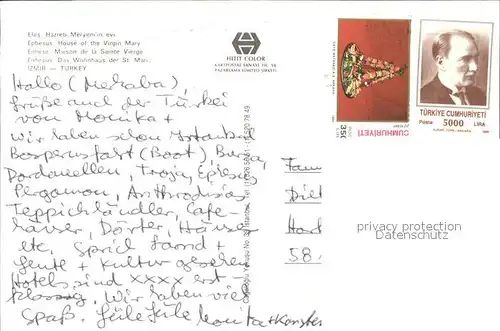 Efes. Hazreti Meryem'in evi
Ephesus. House of the Virgin Mary
Ephese. Maison de la Sainte Vierge
Ephesus. Das Wohnhaus der St. Mari
İZMİR — TURKEY
HİTİT COLOR
KARTPOSTAL SANAYİ TİC. VE
PAZARLAMA LİMİTED ŞİRKETİ
TÜRKİYE CUMHURİYETİ
Posta 5000 LİRA
CUMHURİYETİ
350
Hallo (Merhaba),
Grüße aus der Türkei
von Monika +
Wir haben schon Istanbul
Bosperusfahrt (Boot), Bursa,
Dardanellen, Troja, Ephesus
Pergamon, Aphrodisias
Teppichhändler, Cafe-
häuser, Dörfer, Häuser
etc. Sprich Land +
Leute + Kultur gesehen
Hotels sind xxxx erst-
klassig. Wir haben viel
Spaß. Güle Güle Monika +
Fam
58.
privacy protection
Datenschutz